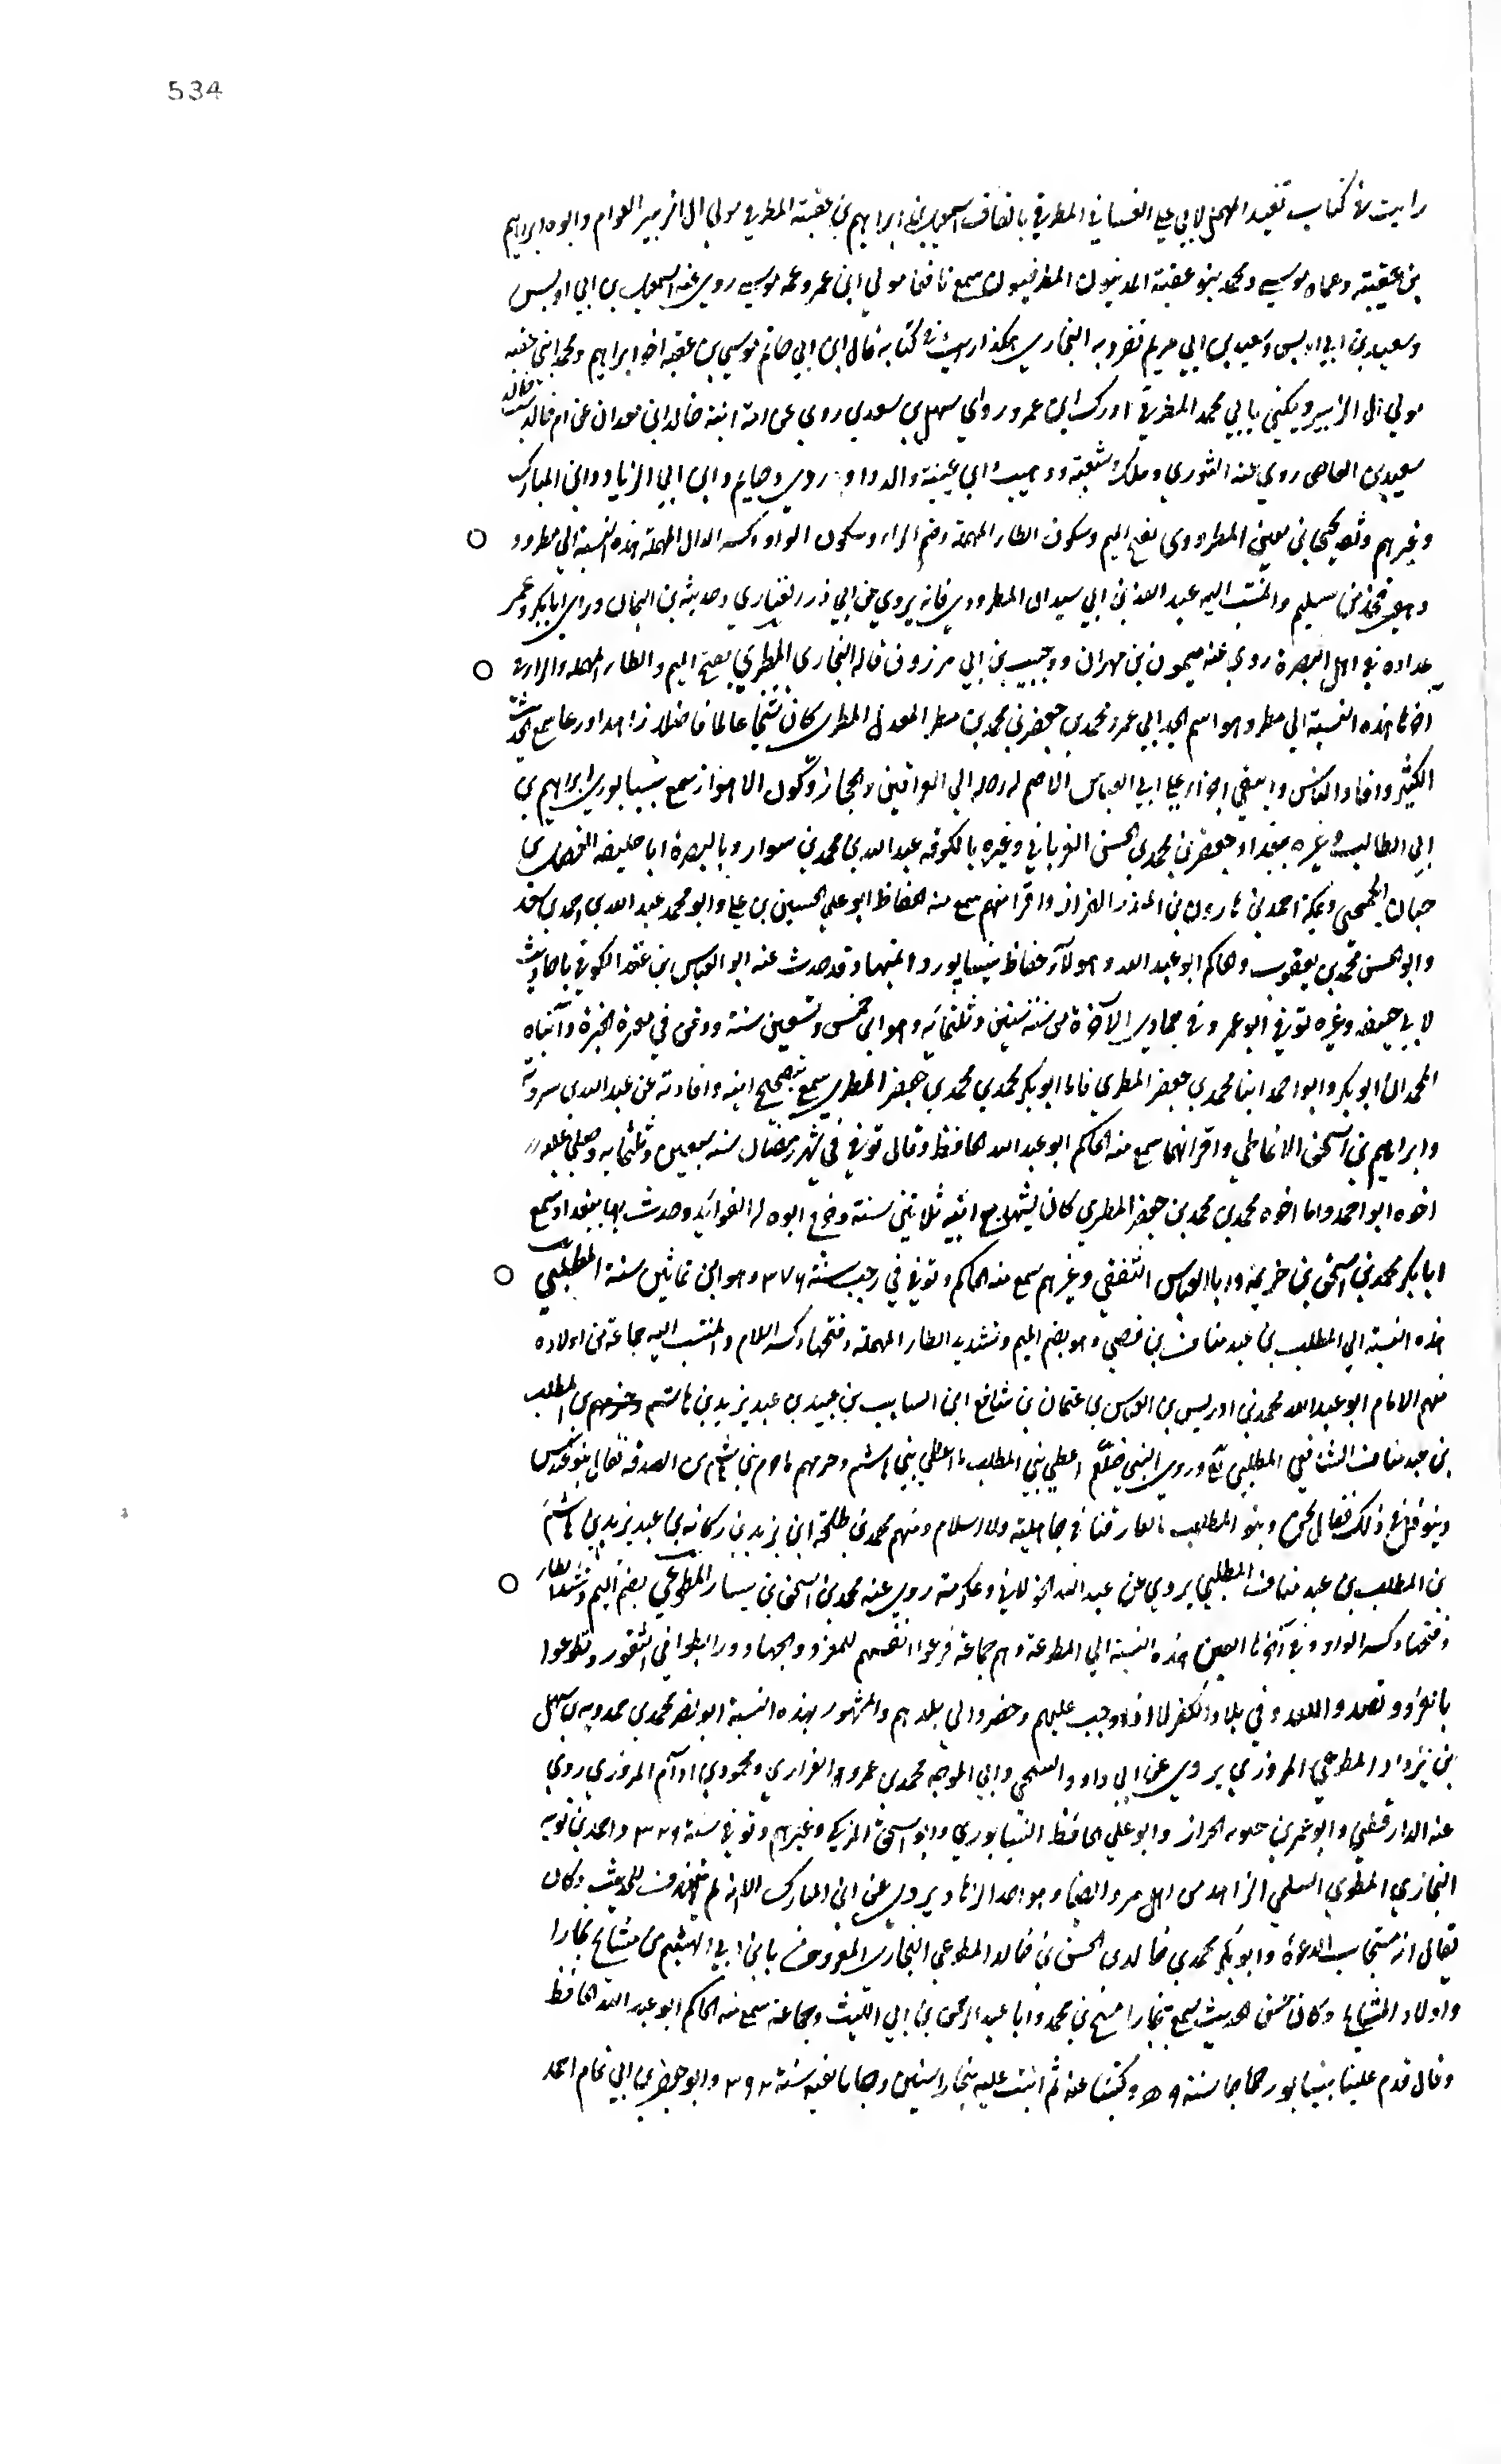 534
رايت في كتاب تقييد المهمل لابي علي الغساني المطرقي بالقاف اسمعيل بن ابراهيم بن عقبة المطرقي مولي ال الزبير العوام وابوه ابراهيم
بن عقبة وعماه موسي ومحمد بنو عقبة المدنيون المطرقيون سمع نافعا مولي ابن عمر وعمه موسي روي عنه اسمعيل بن ابي اويس
وسعيد بن ابي اويس وسعيد بن ابي مريم تفرد به البخاري هكذا رايت في كتابه قال ابن ابي حاتم موسي بن عقبة اخو ابراهيم ومحمد ابني عقبه
مولي ال الزبير ويكني بابي محمد المطرقي ادرك ابن عمر وراي سهل بن سعد روي عن امه ابنة خالد ابن معدان عن ام خالد بنت خالد
سعيد بن العاص روي عنه الثوري وملك وشعبة ووهيب وابن عيينة والدراوردي وحاتم وابن ابي الزناد وابن المبارك
وغيرهم وثقه يحيى بن معين المطرودي بفتح الميم وسكون الطاء المهملة وضم الراء وسكون الواو وكسر الدال المهملة هذه النسبة الي مطرود
وهو فخذ من سليم والمنتسب اليه عبد الله بن ابي سيدان المطرودي فانه يروي عن ابي ذر الغفاري وحذيفة بن اليمان وراي ابابكر وعمر
عداده في اهل البصرة روي عنه ميمون بن مهران وحبيب بن ابي مرزوق قاله البخاري المطري بفتح الميم والطاء المهملة والراء في
اخرها هذه النسبة الي مطر وهو اسم لجد ابي عمرو محمد بن جعفر بن محمد بن مطر المعدل المطري كان شيخا عالما فاضلا زاهدا ورعا سمع الحديث
الكثير وافاد الناس وابتقي اجزاء علي ابي العباس الاصم له رحلة الي العراقين والحجاز وكور الاهواز سمع بنيسابور ابراهيم بن
ابي الطالب وغيره ببغداد جعفر بن محمد بن الحسن الفريابي وغيره بالكوفه عبد الله بن محمد بن سوار وبالبصرة ابا خليفه الفضل بن
حباب الجمحي وبمكة احمد بن هارون بن المنذر القزاز واقرانهم سمع منه الحفاظ ابو علي الحسين بن علي وابو محمد عبد الله بن احمد بن سعد
وابو الحسن محمد بن يعقوب والحاكم ابو عبد الله وهولآء حفاظ نيسابور وائمتها وقد حدث عنه ابو العباس بن عقدة الكوفي باحاديث
لابي خليفه وغيره توفي ابو عمرو في جمادي الآخرة من سنة ستين وثلثمائه وهو ابن خمس وتسعين سنة ودفن في مقبرة الحيرة وابناه
المحمدان ابو بكر وابو احمد ابنا محمد بن جعفر المطري فاما ابو بكر محمد بن محمد بن جعفر المطري سمع بتصحيح ابيه وافادته عن عبد الله بن سرويه
وابراهيم بن اسحق الانماطي واقرانهما سمع منه الحاكم ابو عبد الله الحافظ وقال توفي في شهر رمضان سنه سبعين وثلثمايه وصلي عليه
اخوه ابو احمد واما اخوه محمد بن محمد بن جعفر المطري كان يشهد مع ابيه ثلاثين سنة وخرج ابوه له الفوايد وحدث بها ببغداد سمع
ابابكر محمد بن اسحق بن خزيمة وابا العباس الثقفي وغيرهم سمع منه الحاكم وتوفي في رجب سنة ٣٧٦ وهو ابن ثمانين سنة المطلبي
هذه النسبة الي المطلب بن عبد مناف بن قصي وهو بضم الميم وتشديد الطاء المهملة وفتحها وكسر اللام والمنتسب اليه جماعة من اولاده
منهم الامام ابو عبد الله محمد بن ادريس بن العباس بن عثمان بن شافع ابن السايب بن عبيد بن عبد يزيد بن هاشم بن المطلب
بن عبد مناف الشافعي المطلبي وروي النبي صلعم اعطي بني المطلب ما اعطي بني هاشم وحرمهم ما حرم بني هاشم من الصدقة فقال بنو عبد شمس
وبنو نوفل في ذلك فقال نحن وبنو المطلب ما فارقنا في جاهلية ولا اسلام ومنهم محمد بن طلحة ابن يزيد بن ركانه بن عبد يزيد بن هاشم
بن المطلب بن عبد مناف المطلبي يروي عن عبد الله الخولاني وعكرمة روي عنه محمد بن اسحق بن يسار المطوعي بضم الميم وتشديد الطاء
وفتحها وكسر الواو وفي آخرها العين هذه النسبة الي المطوعة وهم جماعة فرغوا انفسهم للغزو والجهاد ورابطوا في الثغور وتطوعوا
بالغزو وقصدوا العدو في بلاد الكفر لا اذا وجب عليهم وحضروا الي بلدهم والمشهور بهذه النسبة ابو نصر محمد بن حمدويه بن سهل
بن يزداد المطوعي المروزي يروي عن ابي داود السنجي وابي الموجه محمد بن عمرو الفزاري ومحمود بن آدم المروزي روي
عنه الدارقطني وابو عمر بن حيويه الخزاز وابو علي الحافظ النيسابوري وابو اسحق المزكي وغيرهم وتوفي سنة ٣٢٩ واحمد بن توبه
الغازي المطوعي السلمي الزاهد من اهل مرو ايضا وهو احد الزهاد يروي عن ابن المبارك الا انه لم يتفرغ للحديث وكان
يقال انه مستجاب الدعوة وابو بكر محمد بن خالد بن الحسن بن خالد المطوعي البخاري المعروف بابن ابي الهيثم من مشايخ بخارا
واولاد المشايخ وكان حسن الحديث سمع ببخارا مسيح بن محمد وابا عبد الرحمن بن ابي الليث وجماعة سمع منه الحاكم ابو عبد الله الحافظ
وقال قدم علينا بنيسابور حاجا سنة وكتبنا عنه ثم انتقيت عليه ببخارا سنين وجانا نعيه سنة ٣٩٢ وابو جعفر بن ابي تمام احمد